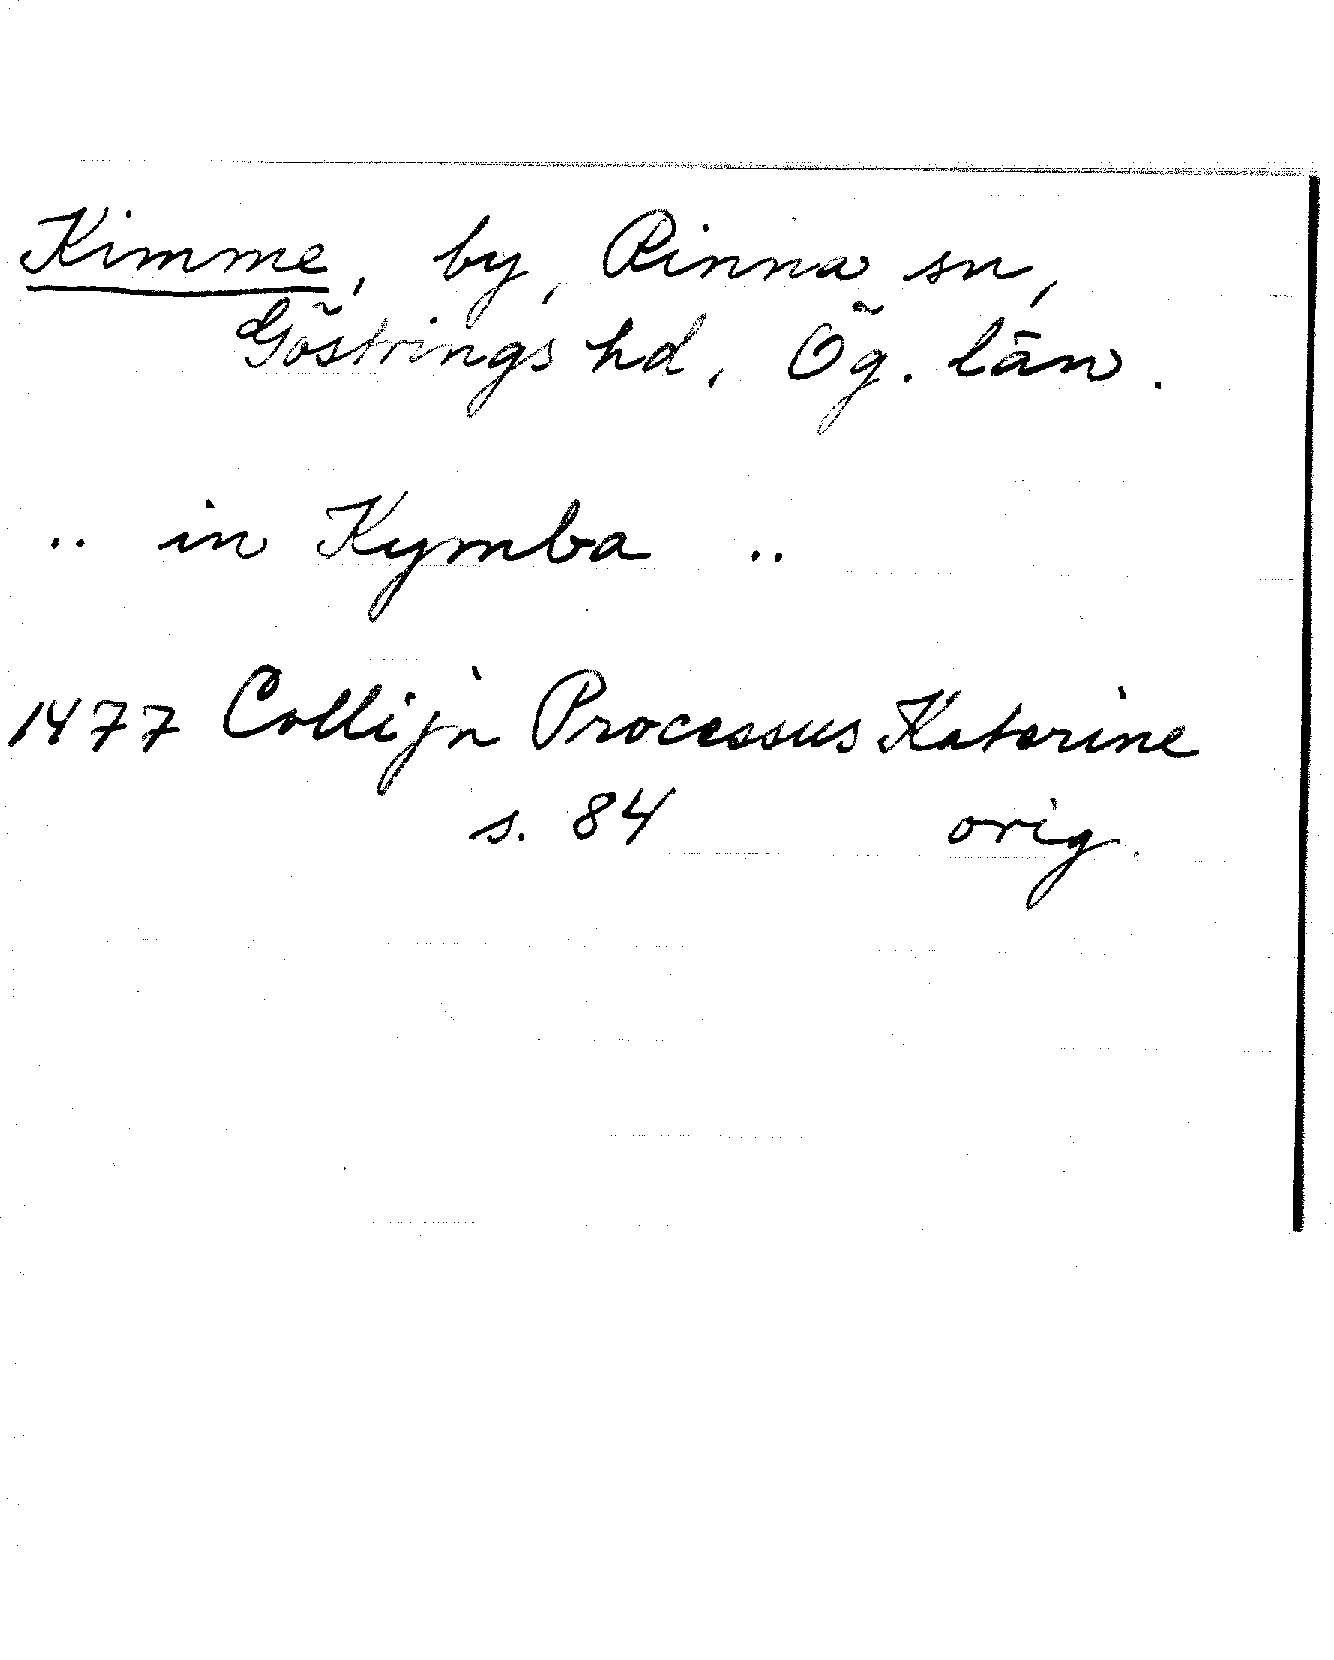 Kimme, by, Rinna sn,
Göstrings hd, Ög. län.
.. in Kymba ..
1477 Collijn Processus Katerine
s. 84 orig.